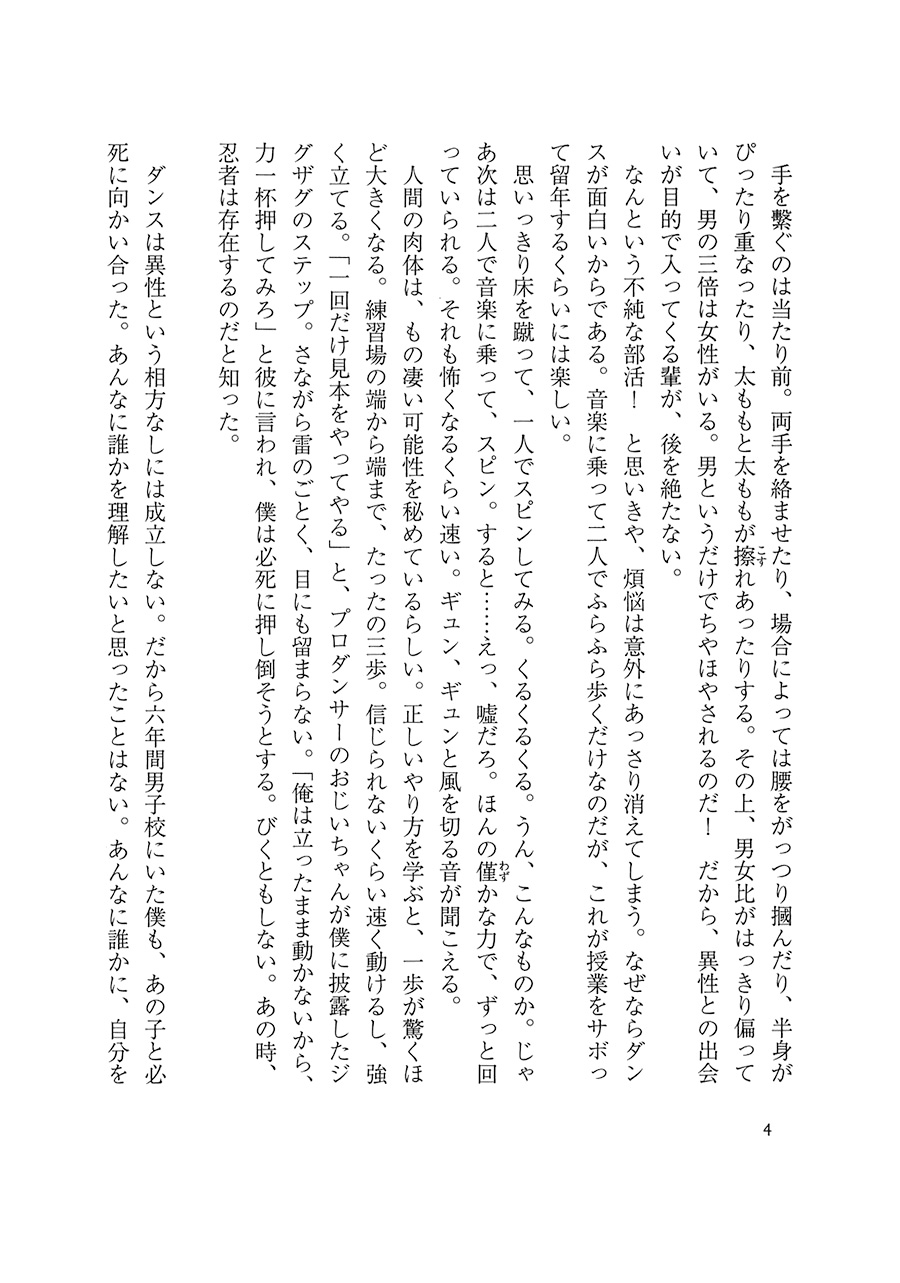 手を繫ぐのは当たり前。両手を絡ませたり、場合によっては腰をがっつり摑んだり、半身が
ぴったり重なったり、太ももと太ももが擦れあったりする。その上、男女比がはっきり偏って
こす
いて、男の三倍は女性がいる。男というだけでちやほやされるのだ！　だから、異性との出会
いが目的で入ってくる輩が、後を絶たない。
なんという不純な部活！　と思いきや、煩悩は意外にあっさり消えてしまう。なぜならダン
スが面白いからである。音楽に乗って二人でふらふら歩くだけなのだが、これが授業をサボっ
て留年するくらいには楽しい。
思いっきり床を蹴って、一人でスピンしてみる。くるくるくる。うん、こんなものか。じゃ
あ次は二人で音楽に乗って、スピン。すると……えっ、噓だろ。ほんの僅かな力で、ずっと回
わず
っていられる。それも怖くなるくらい速い。ギュン、ギュンと風を切る音が聞こえる。
人間の肉体は、もの凄い可能性を秘めているらしい。正しいやり方を学ぶと、一歩が驚くほ
ど大きくなる。練習場の端から端まで、たったの三歩。信じられないくらい速く動けるし、強
く立てる。「一回だけ見本をやってやる」と、プロダンサーのおじいちゃんが僕に披露したジ
グザグのステップ。さながら雷のごとく、目にも留まらない。「俺は立ったまま動かないから、
力一杯押してみろ」と彼に言われ、僕は必死に押し倒そうとする。びくともしない。あの時、
忍者は存在するのだと知った。
ダンスは異性という相方なしには成立しない。だから六年間男子校にいた僕も、あの子と必
死に向かい合った。あんなに誰かを理解したいと思ったことはない。あんなに誰かに、自分を
4